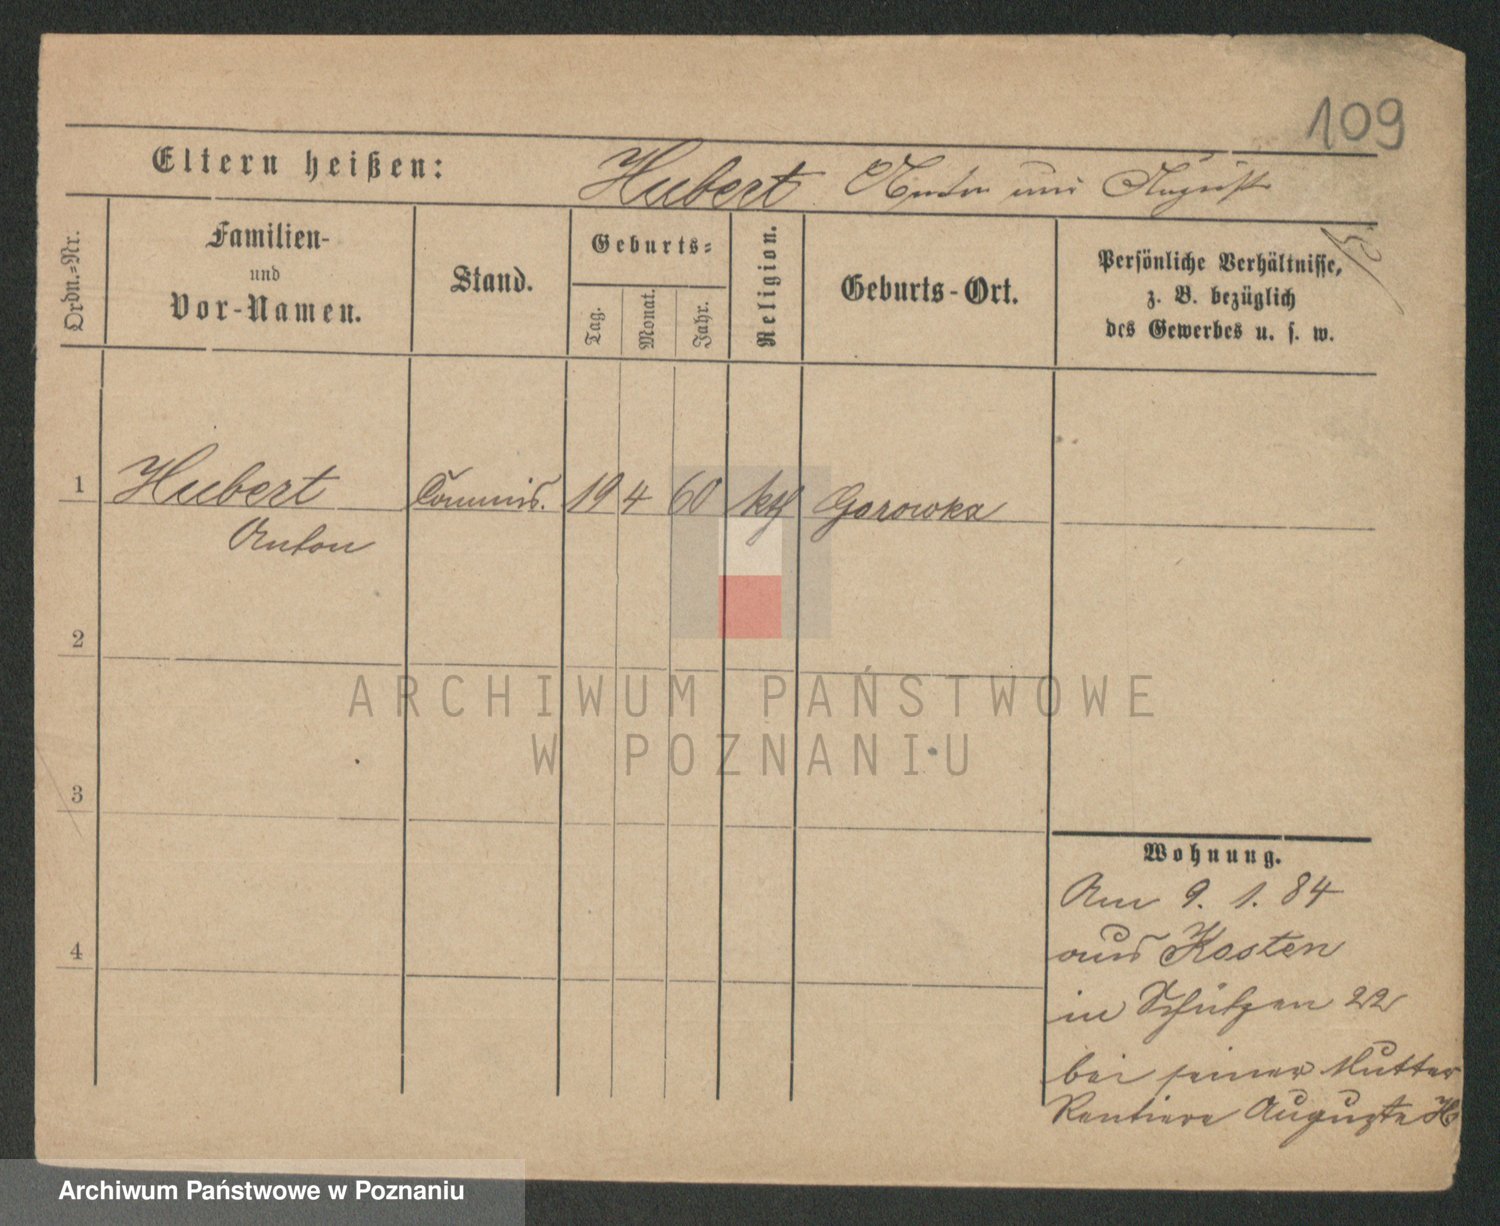 109
Eltern heißen: Hubert und August
Ordn.=Nr.
Familien-
und
Vor-Namen.
Stand.
Geburts=
Tag.
Monat.
Jahr.
Religion.
Geburts-Ort.
Persönliche Verhältnisse,
z. B. bezüglich
des Gewerbes u. s. w.
1 Hubert Commis. 19 4 60 kth Gorowka
Anton
2
3
4
Wohnung.
Am 9. 1. 84
aus Kosten
in Schützen 22
bei seiner Mutter
Rentiere Auguste H
ARCHIWUM PAŃSTWOWE
W POZNANIU
Archiwum Państwowe w Poznaniu